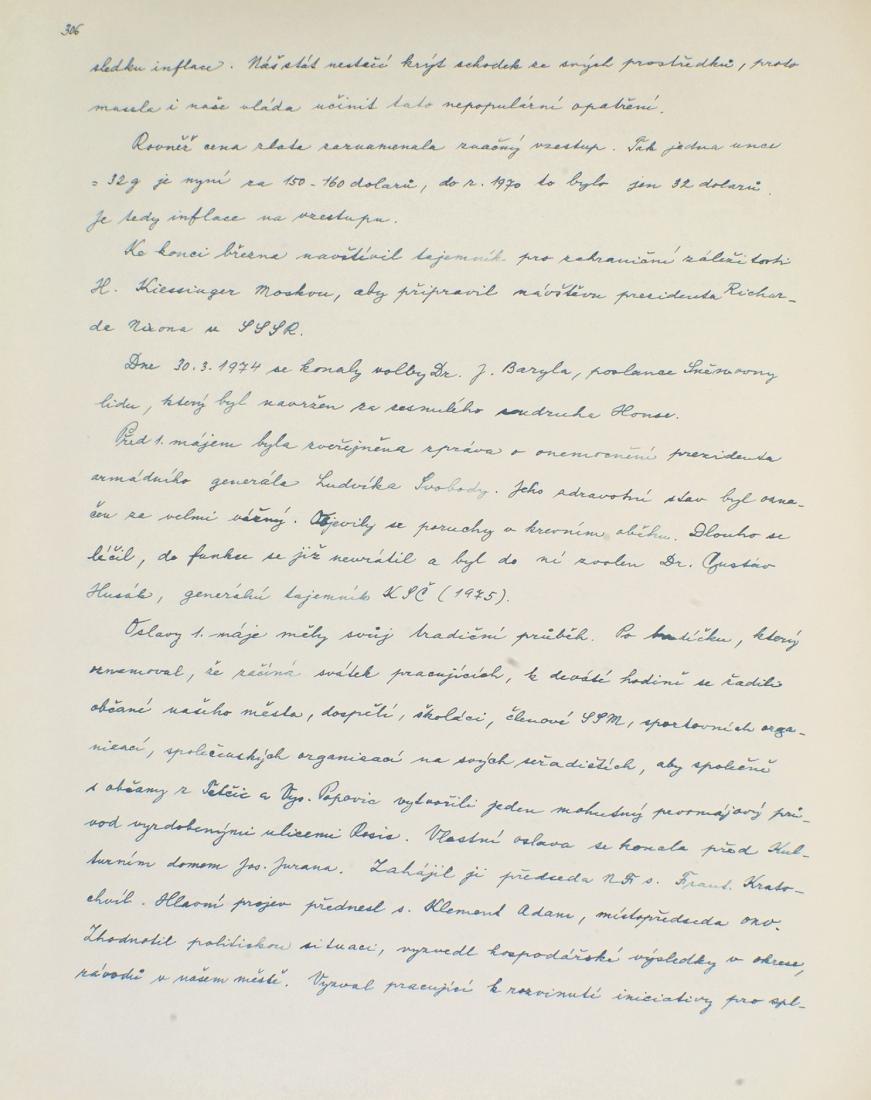 306
sledku inflace. Náš stát nestačí krýt schodek ze svých prostředků, proto
musela i naše vláda učinit tato nepopulární opatření.
Rovněž cena zlata zaznamenala značný vzestup. Tak jedna unce
= 32 g je nyní za 150 - 160 dolarů, do r. 1970 to bylo jen 32 dolarů.
Je tedy inflace na vzestupu.
Ke konci března navštívil tajemník pro zahraniční záležitosti
H. Kiessinger Moskvu, aby připravil návštěvu prezidenta Richar-
da Nixona v SSSR.
Dne 30.3.1974 se konaly volby Dr. J. Baryla, poslance Sněmovny
lidu, který byl navržen za zesnulého soudruha Honse.
Před 1. májem byla zveřejněna zpráva o onemocnění prezidenta
armádního generála Ludvíka Svobody. Jeho zdravotní stav byl ozna-
čen za velmi vážný. Objevily se poruchy v krevním oběhu. Dlouho se
léčil, do funkce se již nevrátil a byl do ní zvolen Dr. Gustáv
Husák, generální tajemník KSČ (1975).
Oslavy 1. máje měly svůj tradiční průběh. Po budíčku, který
oznamoval, že začíná svátek pracujících, k deváté hodině se řadili
občané našeho města, dospělí, školáci, členové SSM, sportovních orga-
nizací, společenských organizací na svých seřadištích, aby společně
s občany z Tetčic a Vys. Popovic vytvořili jeden mohutný prvomájový prů-
vod vyzdobenými ulicemi Rosic. Vlastní oslava se konala před Kul-
turním domem Jos. Jurana. Zahájil ji předseda NF s. Frant. Krato-
chvíl. Hlavní projev přednesl s. Klement Adam, místopředseda ONV.
Zhodnotil politickou situaci, vyzvedl hospodářské výsledky v okrese,
závodů v našem městě. Vyzval pracující k rozvinutí iniciativy pro spl-